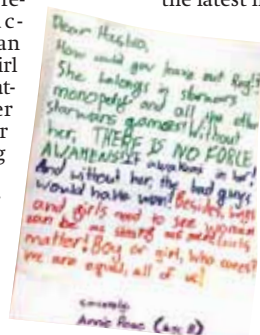 the latest in
Dear Hasbro,
How could you leave out Rey!?
She belongs in starwars
monopoly and all the other
starwars games! Without
her, THERE IS NO FORCE
AWAKENS! It awakens in her!
And without her, the bad guys
would have won! Besides, boys
and girls need to see women
can be as strong as men! Girls
matter! Boy or girl, who cares?
we are equal, all of us!
sincerely
Annie Rose (age 8)